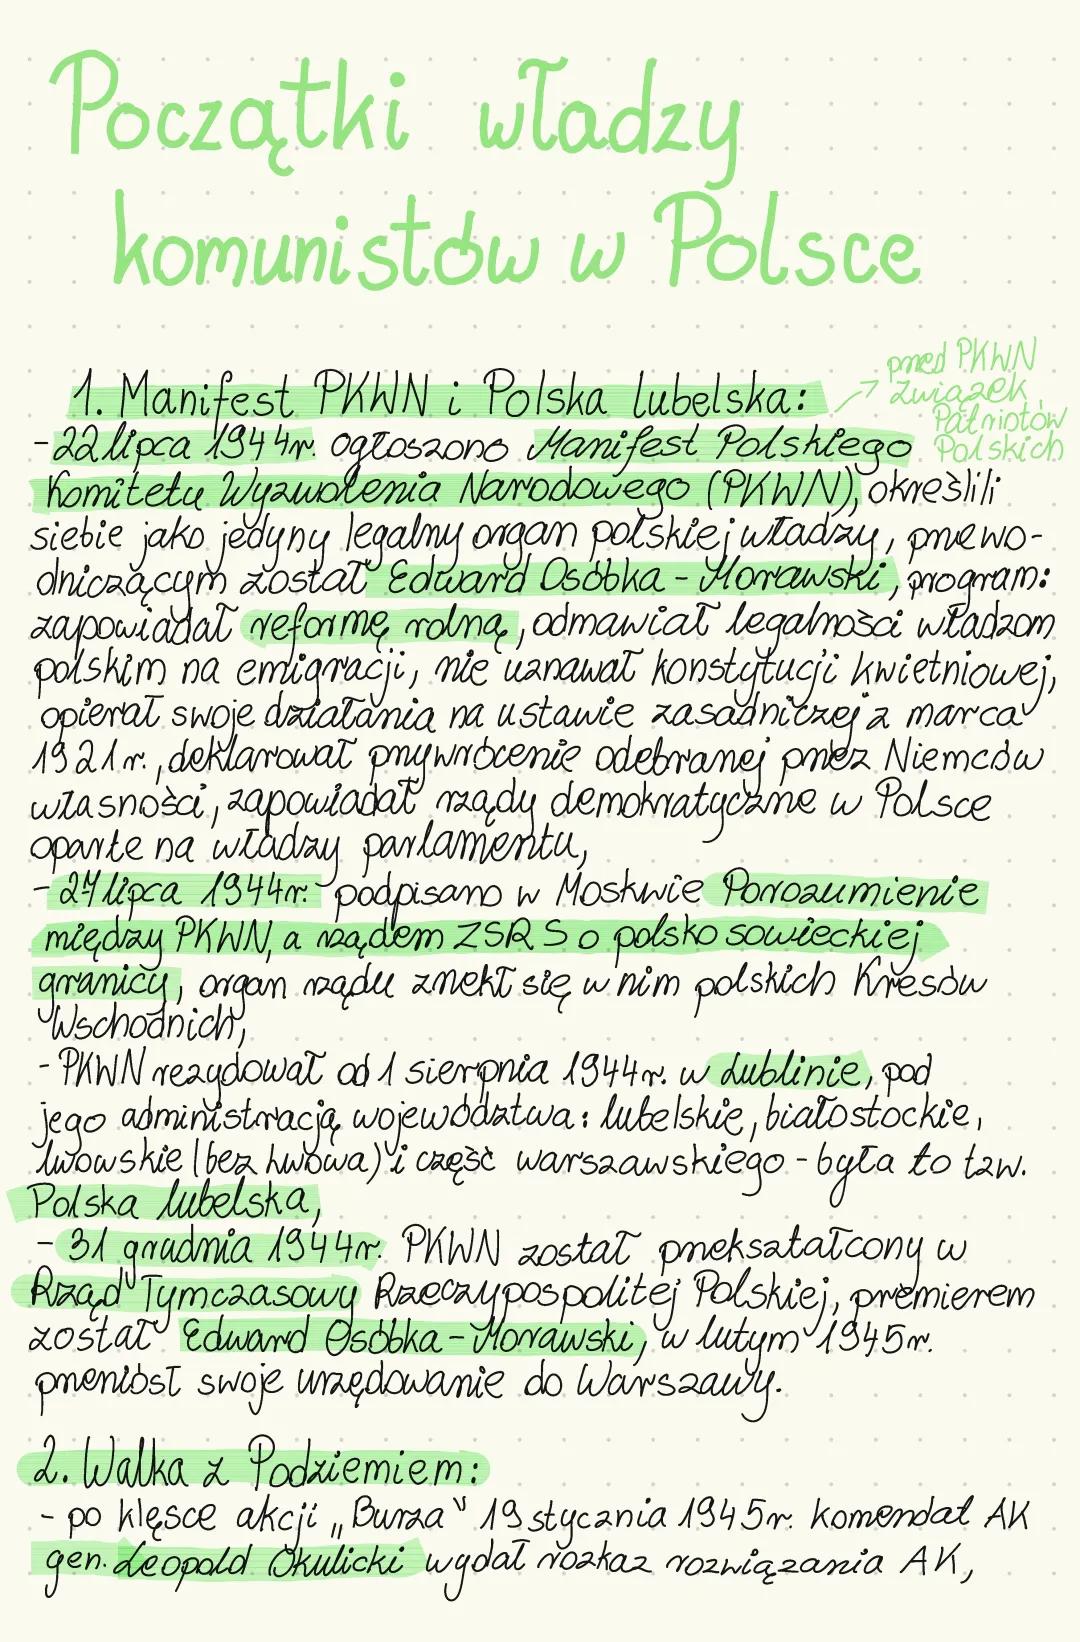 Początki władzy
komunistów w Polsce
przed PKWN
Związek
Patriotów
Polskich
1. Manifest PKWN i Polska lubelska:
- 22 lipca 1944r. ogłoszono Manifest Polskiego
Komitetu Wyzwolenia Narodowego (PKWN), określili
siebie jako jedyny legalny organ polskiej władzy, przewo-
dniczącym został Edward Osóbka - Morawski, program:
zapowiadał reformę rolną, odmawiał legalności władzom
polskim na emigracji, nie uznawał konstytucji kwietniowej,
opierał swoje działania na ustawie zasadniczej z marca
1921r., deklarował przywrócenie odebranej przez Niemców
własności, zapowiadał rządy demokratyczne w Polsce
oparte na władzy parlamentu,
- 27 lipca 1944r. podpisano w Moskwie Porozumienie
między PKWN, a rządem ZSRS o polsko sowieckiej
granicy, organ rządu zrzekł się w nim polskich Kresów
Wschodnich,
- PKWN rezydował od 1 sierpnia 1944r. w Lublinie, pod
jego administracją województwa: lubelskie, białostockie,
lwowskie (bez Lwowa) i część warszawskiego - była to tzw.
Polska lubelska,
- 31 grudnia 1944r. PKWN został przekształcony w
Rząd Tymczasowy Rzeczypospolitej Polskiej, premierem
został Edward Osóbka - Morawski, w lutym 1945r.
przeniósł swoje urzędowanie do Warszawy.
2. Walka z Podziemiem:
- po klęsce akcji „Burza" 19 stycznia 1945r. komendat AK
gen. Leopold Okulicki wydał rozkaz rozwiązania AK,